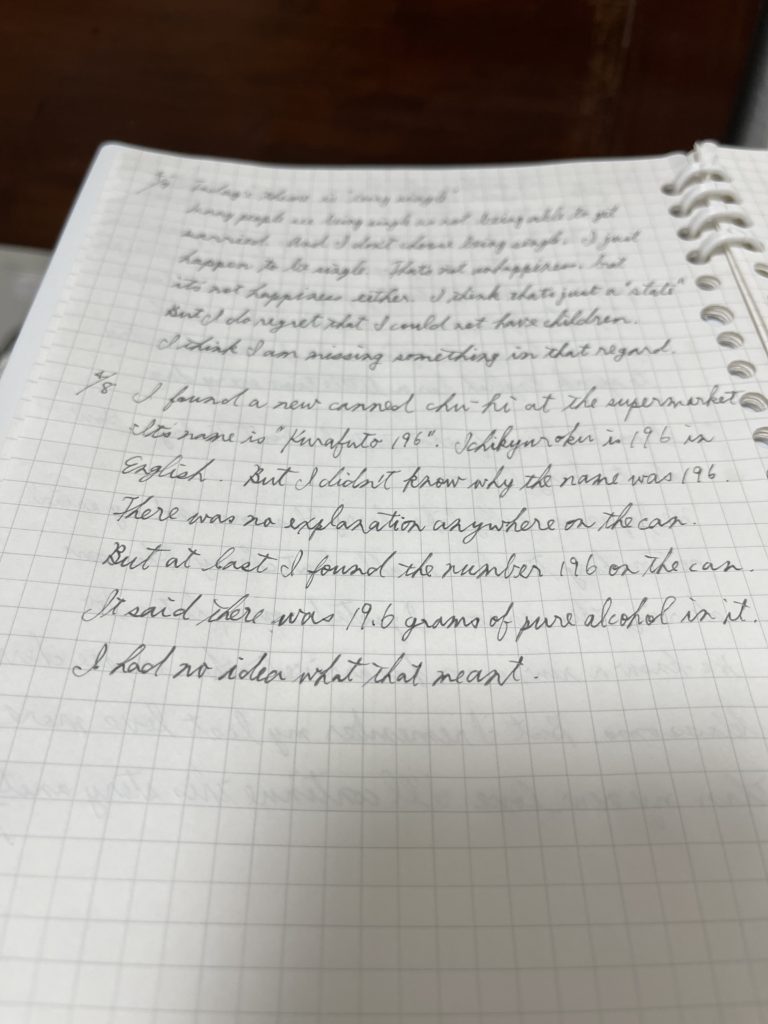 Today's theme is "being single"
many people are being single as not being able to get
married. And I don't choose being single. I just
happen to be single. That's not unhappiness, but
it's not happiness either. I think that's just a "state"
But I do regret that I could not have children.
I think I am missing something in that regard.
4/8 I found a new canned chu-hi at the supermarket
It's name is "Kurafuto 196". Ichikyuroku is 196 in
English. But I didn't know why the name was 196.
There was no explanation anywhere on the can.
But at last I found the number 196 on the can.
It said there was 19.6 grams of pure alcohol in it.
I had no idea what that meant.